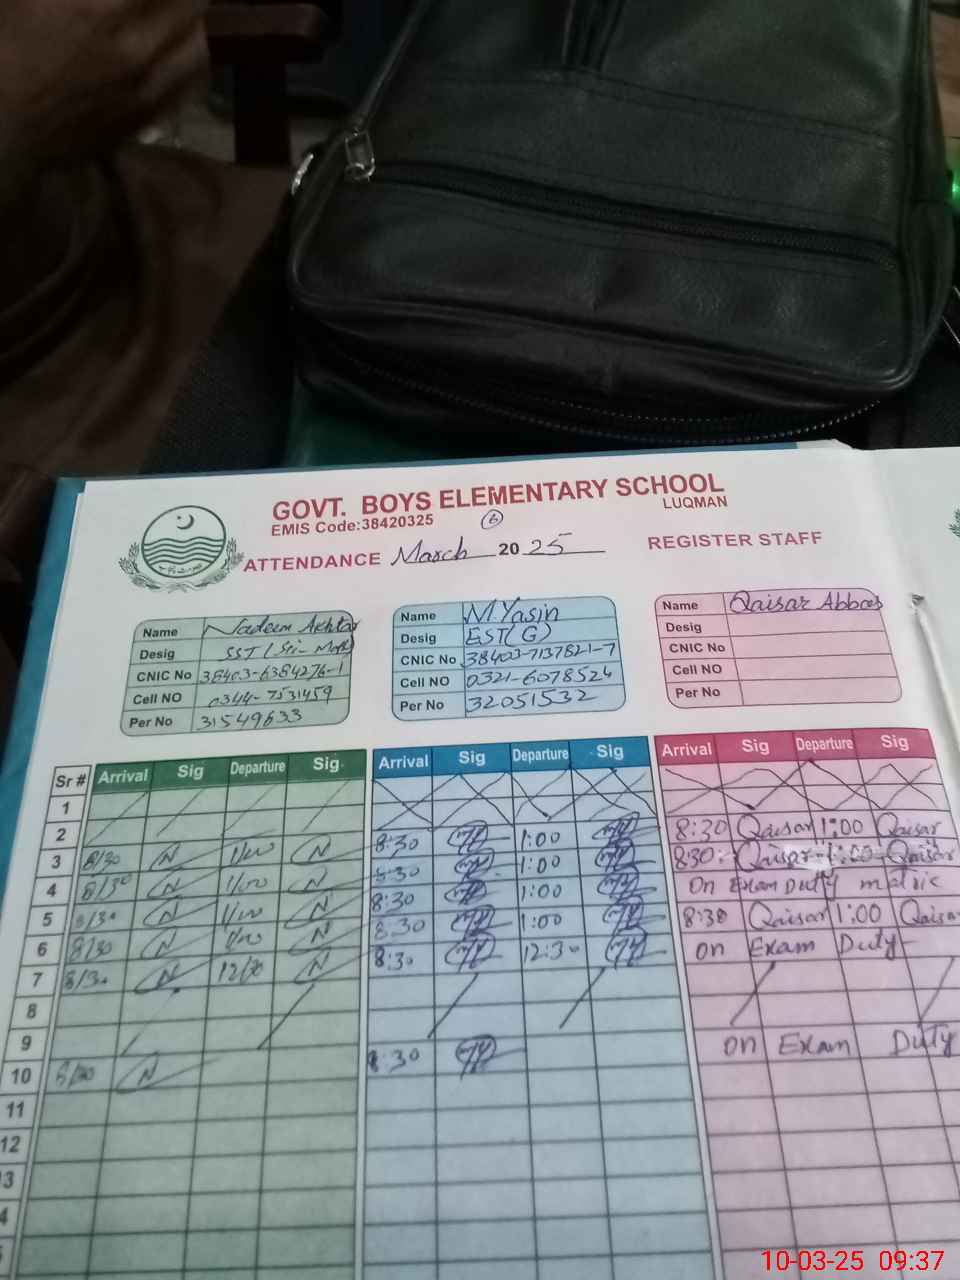 GOVT. BOYS ELEMENTARY SCHOOL
LUQMAN
EMIS Code:38420325
6
ATTENDANCE March 2025 REGISTER STAFF
Name Nadeem Akhtar
Desig SST
CNIC No 38403-6384276-1
Cell NO 0344-7531459
Per No 31549633
Name M.Yasin
Desig EST(G)
CNIC No 38403-7137821-7
Cell NO 0321-6078524
Per No 32051532
Name Qaisar Abbas
Desig
CNIC No
Cell NO
Per No
Sr # Arrival Sig Departure Sig Arrival Sig Departure Sig Arrival Sig Departure Sig
1
2
3 8/30 N 1/00 N 8:30 1:00 8:30 Qaisar 1:00 Qaisar
4 8/30 N 1/00 N 8:30 1:00 8:30 Qaisar 1:00 Qaisar
5 8/30 N 1/00 N 8:30 1:00 On Exam Duty matric
6 8/30 N 1/00 N 8:30 1:00 8:30 Qaisar 1:00 Qaisar
7 8/30 N 12/30 N 8:30 12:30 on Exam Duty
8
9
10 8/30 N 8:30 on Exam Duty
11
12
3
4
10-03-25 09:37